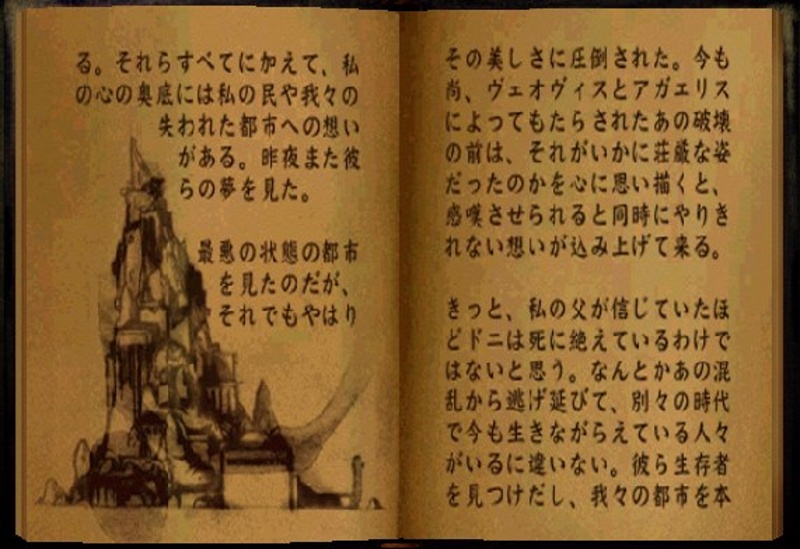 る。それらすべてに加えて、私
の心の奥底には私の民や我々の
失われた都市への想い
がある。昨夜また彼
らの夢を見た。
最悪の状態の都市
を見たのだが、
それでもやはり
その美しさに圧倒された。今も
尚、ヴェオヴィスとアガエリス
によってもたらされたあの破壊
の前は、それがいかに荘厳な姿
だったのかを心に思い描くと、
感嘆させられると同時にやりき
れない想いが込み上げて来る。
きっと、私の父が信じていたほ
どドニは死に絶えているわけで
はないと思う。なんとかあの混
乱から逃げ延びて、別々の時代
で今も生きながらえている人々
がいるに違いない。彼ら生存者
を見つけだし、我々の都市を本